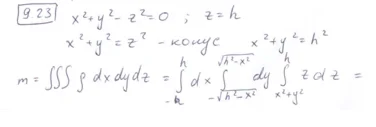 9.23 x²+y²-z²=0 ; z=h
x²+y²=z² - конус x²+y²=h²
m = ∭ ρ dxdydz = ∫_{-h}^{h} dx ∫_{-√(h²-x²)}^{√(h²-x²)} dy ∫_{x²+y²}^{h} z dz =